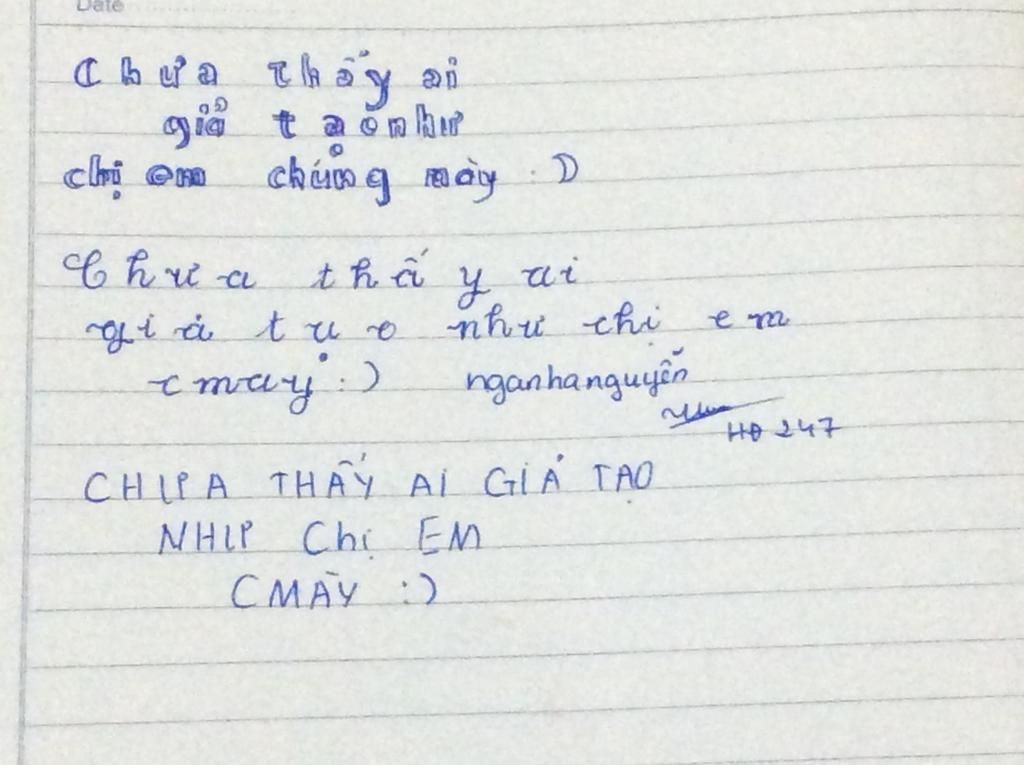 Date
Chưa thấy ai
giả tạo như
chị em chúng mày :)
Chưa thấy ai
giả tuo như chị em
cmày :) nganhanguyễn
HĐ 247
CHƯA THẤY AI GIẢ TẠO
NHƯ Chị EM
CMÀY :)